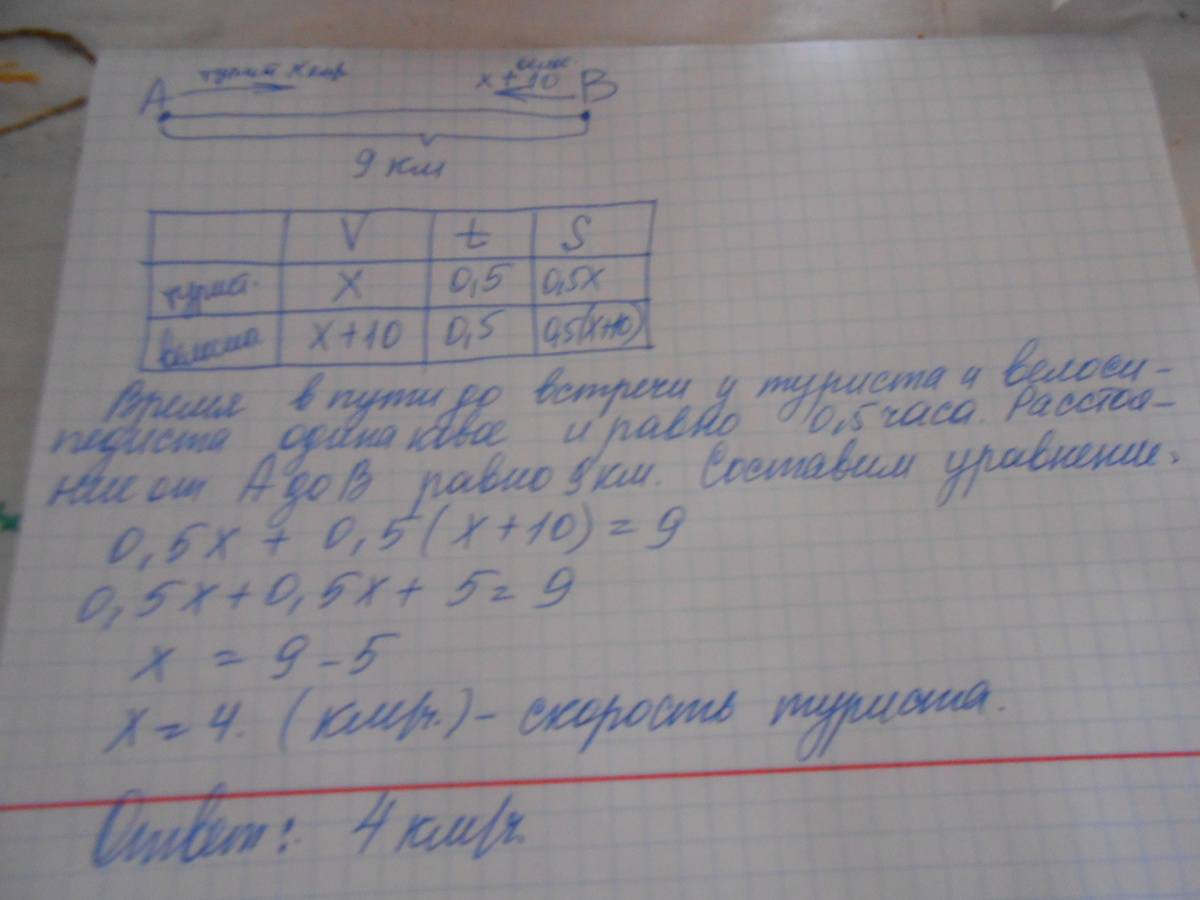 турист x км/ч
x + 10
A B
9 км
V t S
турист. x 0,5 0,5x
x+10 0,5 0,5(x+10)
Время в пути до встречи у туриста и велоси-
педиста одинаковое и равно 0,5 часа. Расстоя-
ние от A до B равно 9 км. Составим уравнение:
0,5x + 0,5(x+10) = 9
0,5x + 0,5x + 5 = 9
x = 9 - 5
x = 4. (км/ч.) - скорость туриста.
Ответ: 4 км/ч.